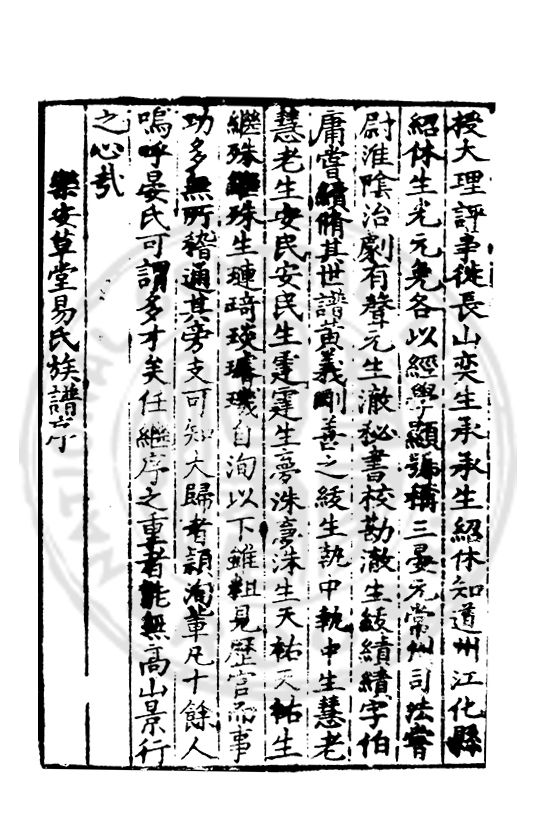 授大理評事徙長山奕生承承生紹休知道州江化縣
紹休生光元堯各以經學顯號稱三晏元常州司法嘗
尉淮陰治劇有聲元生澈秘書校勘澈生綾績績字伯
庸嘗續脩其世譜黃義剛善之綾生執中執中生慧老
慧老生安民安民生霆霆生夢洙夢洙生天祐天祐生
繼殊繼殊生璉琦琰璿璣自洵以下雖粗見歷官而事
功多無所稽適其旁支可知大歸者穎洵輩凡十餘人
嗚呼晏氏可謂多才矣任繼序之重者能無高山景行
之心哉
樂安草堂易氏族譜序